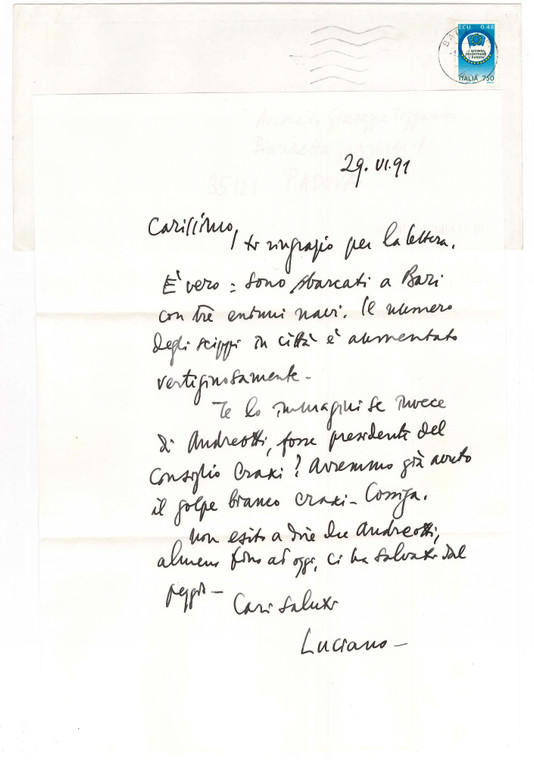 ECU 0.48
ITALIA 750
35121 PADOVA
29.VI.91
Carissimo,
ti ringrazio per la lettera.
È vero: sono sbarcati a Bari
con tre enormi navi. Il numero
degli scippi in città è aumentato
vertiginosamente -
Te lo immagini se invece
di Andreotti, fosse presidente del
Consiglio Craxi? Avremmo già avuto
il golpe bianco Craxi - Cossiga.
Non esito a dire che Andreotti,
almeno fino ad oggi, ci ha salvati dal
peggio -
Cari saluti
Luciano -